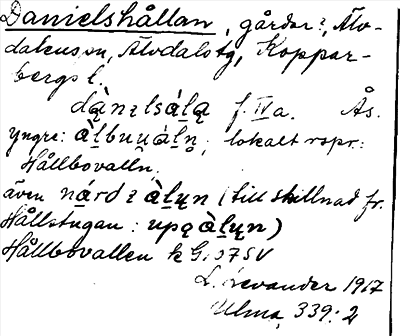 Danielshållan, gårdar?, Älv-
dalens sn, Älvdals tg, Koppar-
bergs l.
dą̀nęlsą́lą f. IV a. Ås.
yngre: ą̀lbuu̯ą́ln̥; lokalt rspr.:
Hållbovalln.
även nárdʒ ą̀lųn (till skillnad fr.
Hållstugan: upą ą̀lųn)
Hållbovallen k G. 07 SV
L. Levander 1917
Ulma 339:2